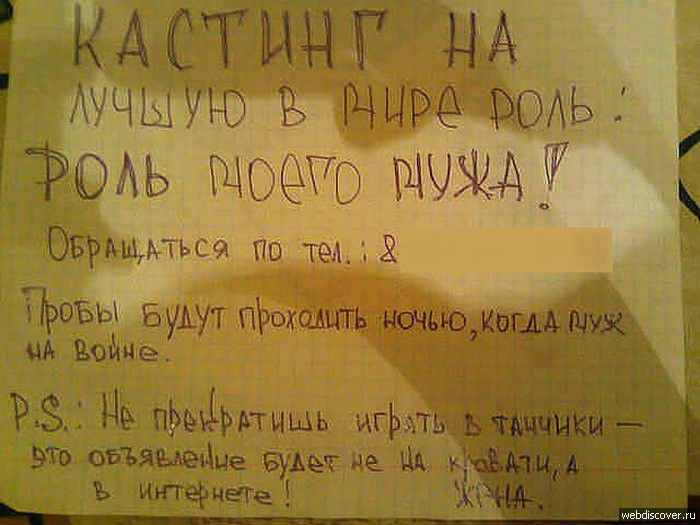 КАСТИНГ НА
ЛУЧШУЮ В МИРЕ РОЛЬ:
РОЛЬ МОЕГО МУЖА!
ОБРАЩАТЬСЯ ПО ТЕЛ.: 8
ПРОБЫ БУДУТ ПРОХОДИТЬ НОЧЬЮ, КОГДА МУЖ
НА ВОЙНЕ.
P.S.: НЕ ПРЕКРАТИШЬ ИГРАТЬ В ТАНЧИКИ —
ЭТО ОБЪЯВЛЕНИЕ БУДЕТ НЕ НА КРОВАТИ, А
В ИНТЕРНЕТЕ! ЖРНА.
webdiscover.ru